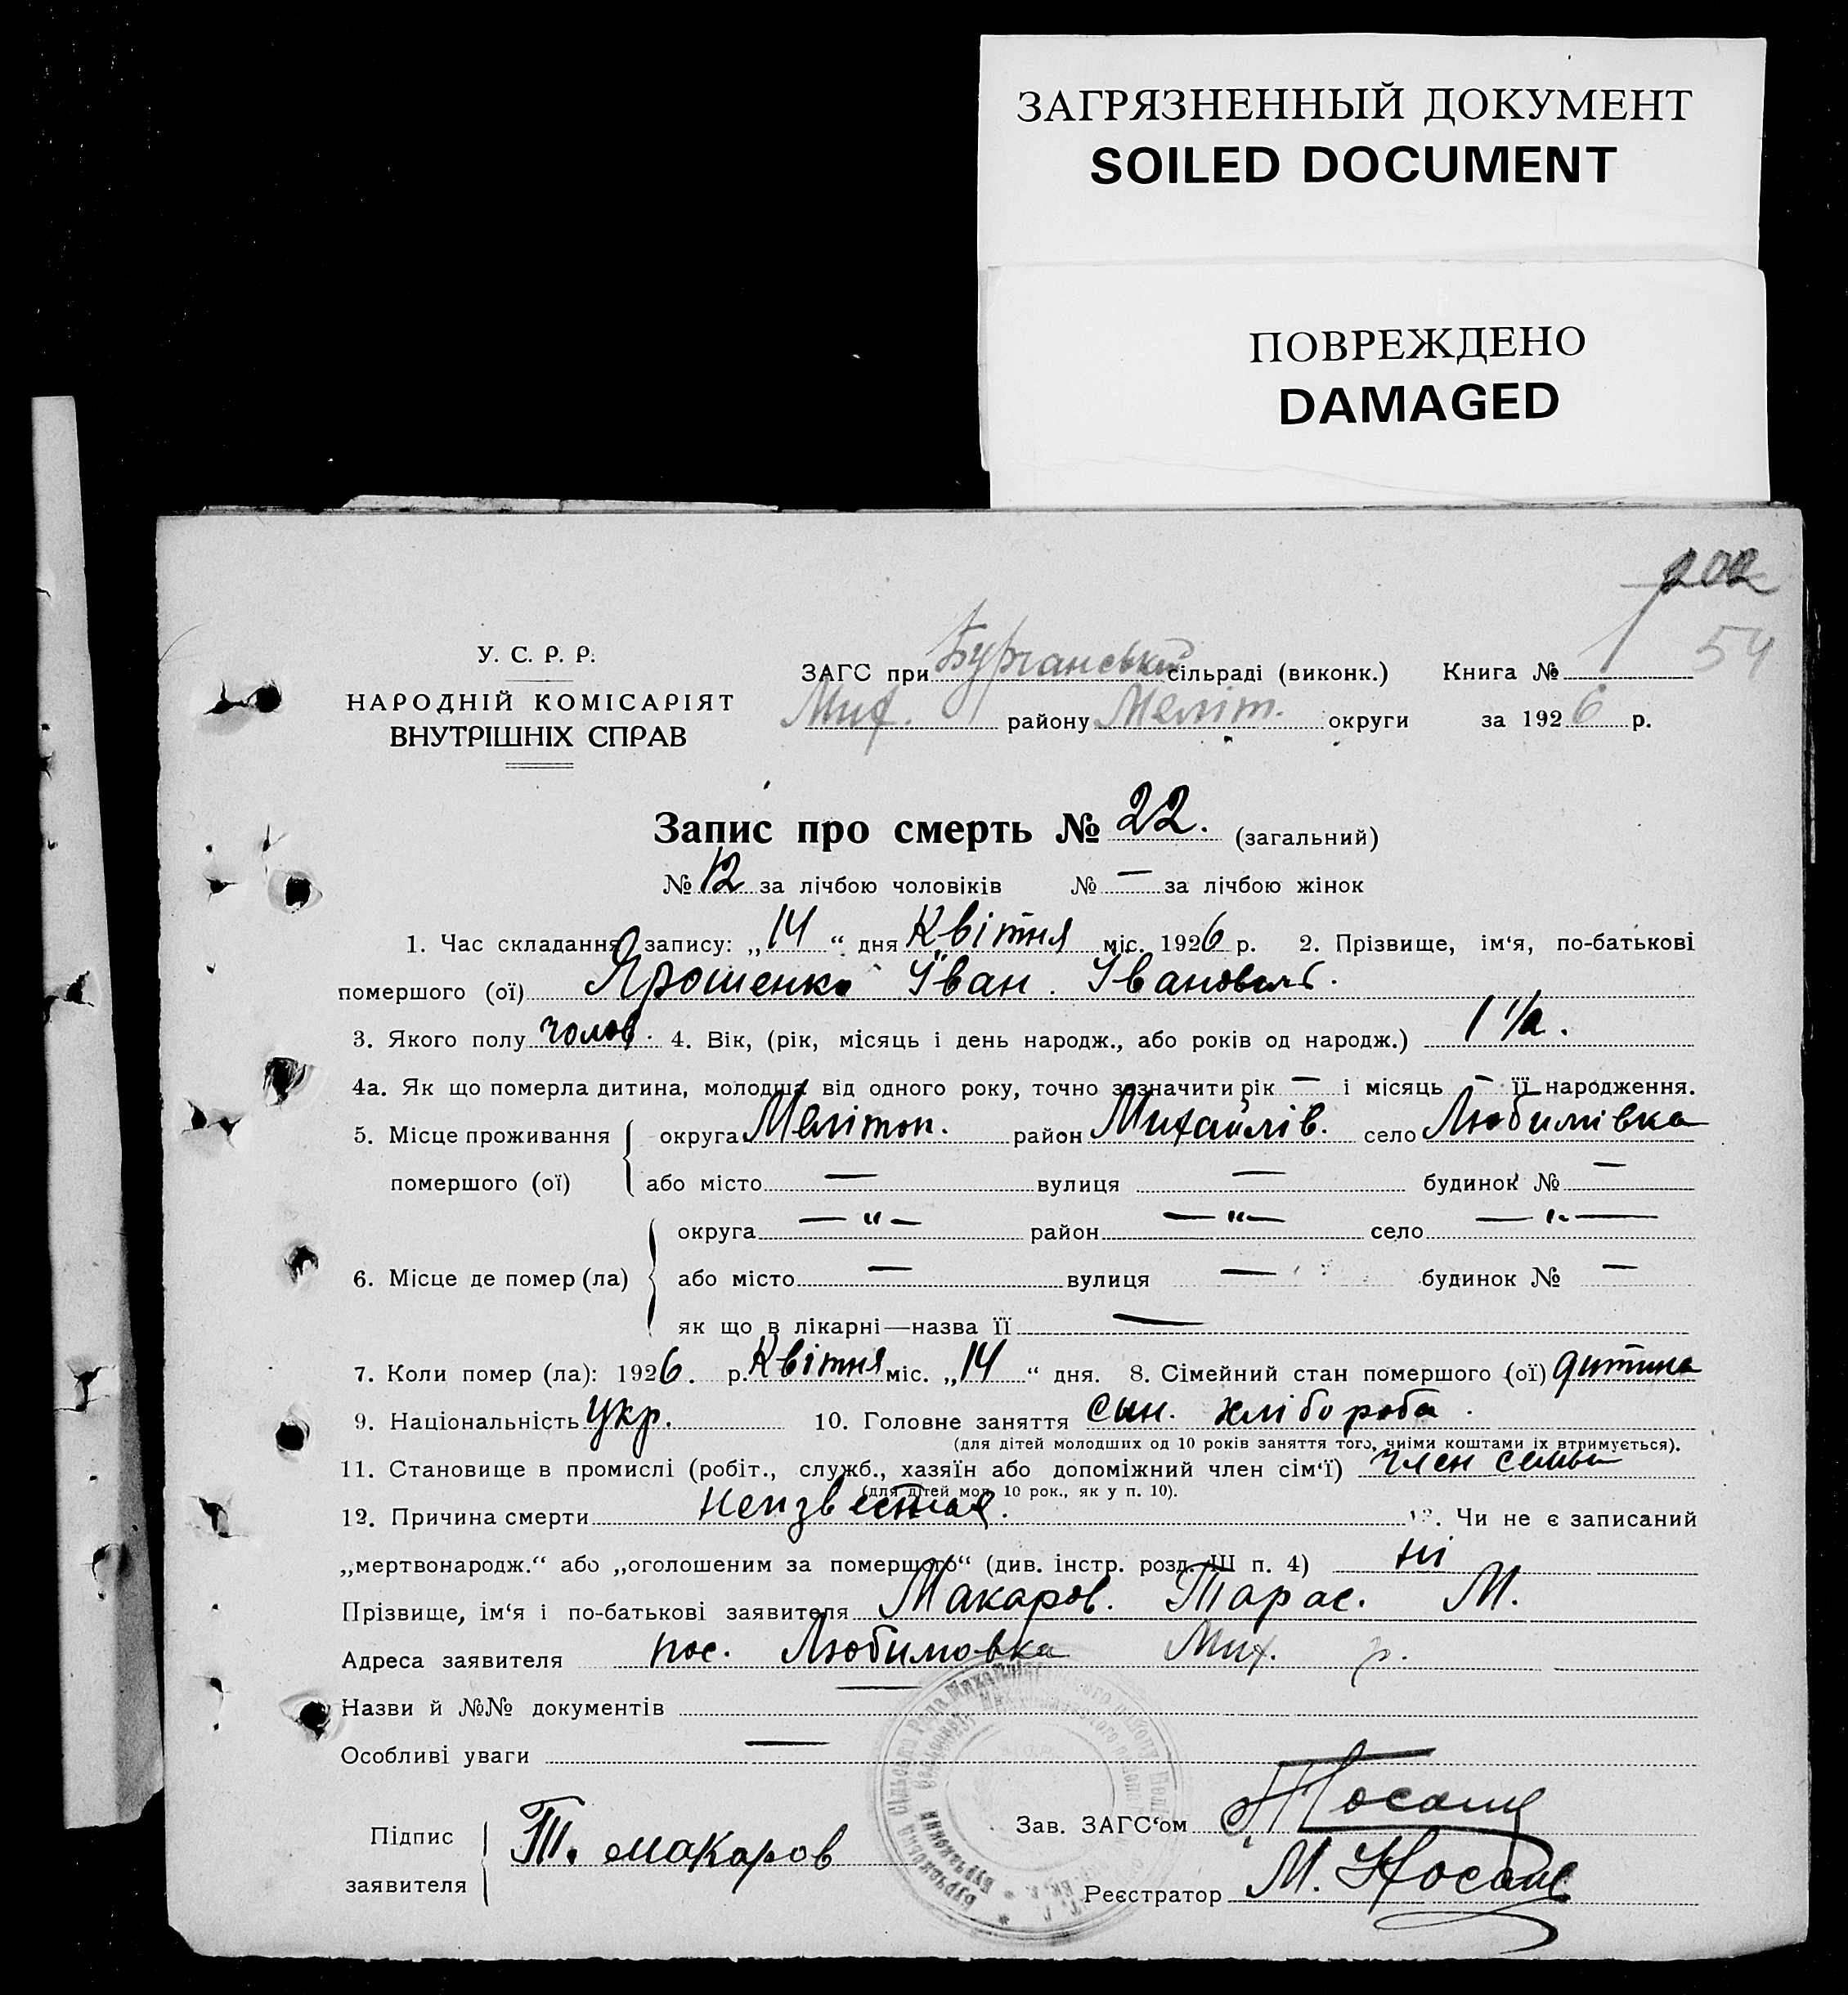 ЗАГРЯЗНЕННЫЙ ДОКУМЕНТ
SOILED DOCUMENT
ПОВРЕЖДЕНО
DAMAGED
202
54
У. С. Р. Р.
НАРОДНІЙ КОМІСАРІЯТ
ВНУТРІШНІХ СПРАВ
ЗАГС при Бурчанській сільраді (виконк.) Книга № 1
Мих. району Меліт. округи за 1926 р.
Запис про смерть № 22. (загальний)
№ 12 за лічбою чоловіків № — за лічбою жінок
1. Час складання запису: „14“ дня Квітня міс. 1926 р. 2. Прізвище, ім‘я, по-батькові
помершого (ої) Ярошенко Іван Іванович.
3. Якого полу чолов. 4. Вік, (рік, місяць і день народж., або років од народж.) 1 1/2.
4а. Як що померла дитина, молодша від одного року, точно зазначити рік — і місяць — її народження.
5. Місце проживання помершого (ої) округа Мелітоп. район Михайлів. село Любимівка
або місто — вулиця — будинок № —
6. Місце де помер (ла) округа — " — район — " — село — " —
або місто — вулиця — будинок № —
як що в лікарні—назва її —
7. Коли помер (ла): 1926. р. Квітня міс. „14“ дня. 8. Сімейний стан помершого (ої) дитина
9. Національність Укр. 10. Головне заняття сын. хлібороба.
(для дітей молодших од 10 років заняття того, чиїми коштами їх втримується).
11. Становище в промислі (робіт., служб., хазяїн або допоміжний член сім‘ї) член семьи
(для дітей мол. 10 рок., як у п. 10).
12. Причина смерти неизвестная. 13. Чи не є записаний
„мертвонародж.“ або „оголошеним за померщого“ (див. інстр. розд. III п. 4) ні
Прізвище, ім‘я і по-батькові заявителя Макаров. Тарас. М.
Адреса заявителя пос. Любимовка Мих. р.
Назви й №№ документів —
Особливі уваги —
Підпис заявителя Т. Макаров
Зав. ЗАГС‘ом Носань
Реєстратор М. Носань